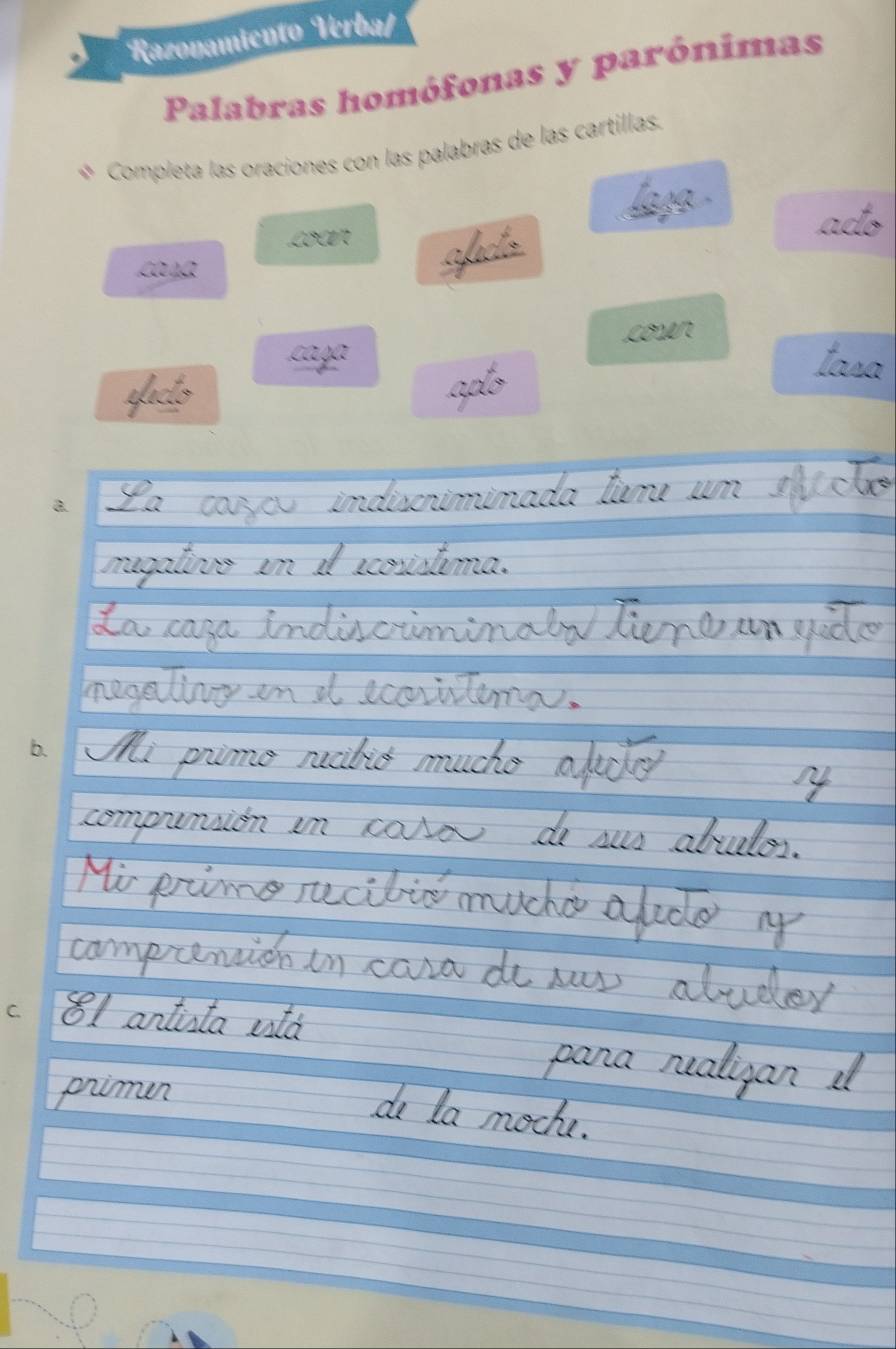 Razonamiento Verbal
Palabras homófonas y parónimas
Completa las oraciones con las palabras de las cartillas.
casa cocer afecto taza acto
efecto caza apto coser tasa
a. La caza indiscriminada tiene un efecto
negativo en el ecosistema.
La caza indiscriminada tiene un efecto
negativo en el ecosistema.
b. Mi primo recibió mucho afecto y
comprensión en casa de sus abuelos.
Mi primo recibió mucho afecto y
comprensión en casa de sus abuelos
c. El artista está para realizar el
primer de la noche.